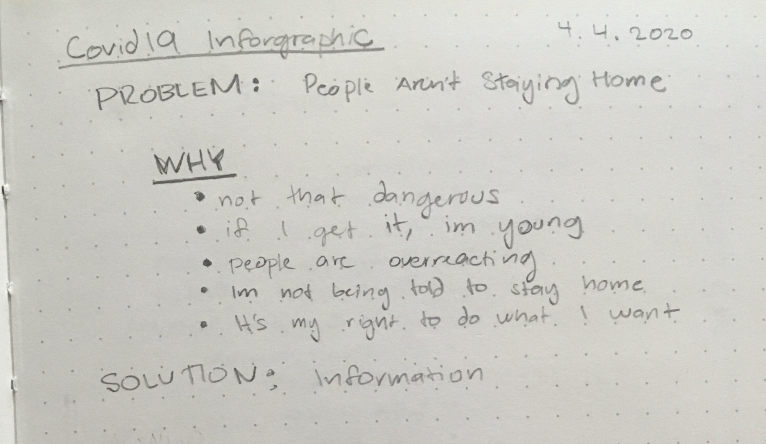 Covid19 Inforgraphic
4.4.2020
PROBLEM: People Aren't Staying Home
WHY
• not that dangerous
• if I get it, im young
• people are overreacting
• Im not being told to stay home
• It's my right to do what I want
SOLUTION: Information